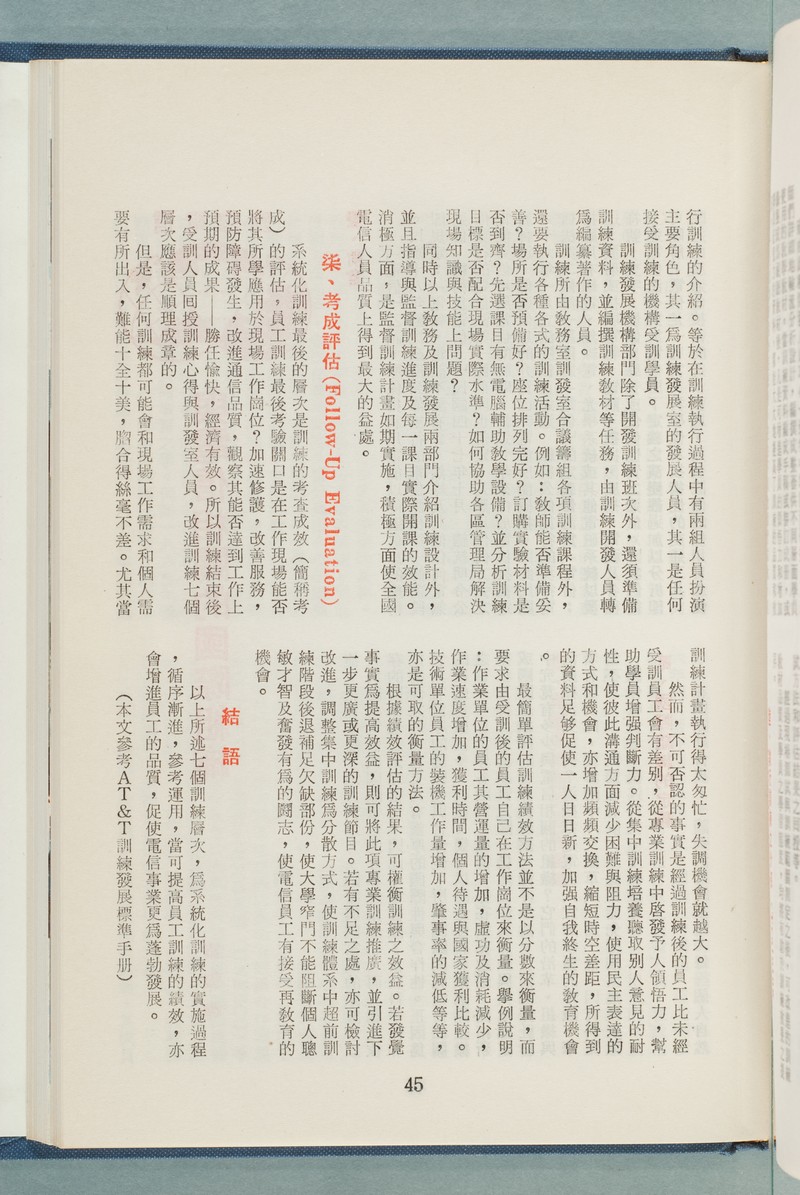 行訓練的介紹。等於在訓練執行過程中有兩組人員扮演
主要角色，其一爲訓練發展室的發展人員，其一是任何
接受訓練的機構受訓學員。
訓練發展機構部門除了開發訓練班次外，還須準備
訓練資料，並編撰訓練教材等任務，由訓練開發人員轉
爲編纂著作的人員。
訓練所由敎務室訓發室合議籌組各項訓練課程外，
還要執行各種各式的訓練活動。例如：敎師能否準備妥
善？場所是否預備好？座位排列完好？訂購實驗材料是
否到齊？先選課目有無電腦輔助敎學設備？並分析訓練
目標是否配合現場實際水準？如何協助各區管理局解決
現場知識與技能上問題？
同時以上敎務及訓練發展兩部門介紹訓練設計外，
並且指導與監督訓練進度及每一課目實際開課的效能。
消極方面，是監督訓練計畫如期實施，積極方面使全國
電信人員品質上得到最大的益處。
柒、考成評估(Follow-Up Evaluation)
系統化訓練最後的層次是訓練的考查成效（簡稱考
成）的評估，員工訓練最後考驗關口是在工作現場能否
將其所學應用於現場工作崗位？加速修護，改善服務，
預防障碍發生，改進通信品質，觀察其能否達到工作上
預期的成果——勝任愉快，經濟有效。所以訓練結束後
，受訓人員回授訓練心得與訓發室人員，改進訓練七個
層次應該是順理成章的。
但是，任何訓練都可能會和現場工作需求和個人需
要有所出入，難能十全十美，脗合得絲毫不差。尤其當
訓練計畫執行得太匆忙，失調機會就越大。
然而，不可否認的事實是經過訓練後的員工比未經
受訓員工會有差别，從專業訓練中啓發予人領悟力，幫
助學員增强判斷力。從集中訓練培養聽取别人意見的耐
性，使彼此溝通方面減少困難與阻力，使用民主表達的
方式和機會，亦增加頻頻交換，縮短時空差距，所得到
的資料足够促使一人日日新，加强自我終生的敎育機會
。
最簡單評估訓練績效方法並不是以分數來衡量，而
要求由受訓後的員工自己在工作崗位來衡量。舉例說明
：作業單位的員工其營運量的增加，虛功及消耗減少，
作業速度增加，獲利時間，個人待遇與國家獲利比較。
技術單位員工的裝機工作量增加，肇事率的減低等等，
亦是可取的衡量方法。
根據績效評估的結果，可權衡訓練之效益。若發覺
事實爲提高效益，則可將此項專業訓練推廣，並引進下
一步更廣或更深的訓練節目。若有不足之處，亦可檢討
改進，調整集中訓練爲分散方式，使訓練體系中超前訓
練階段後退補足欠缺部份，使大學窄門不能阻斷個人聰
敏才智及奮發有爲的鬪志，使電信員工有接受再敎育的
機會。
結語
以上所述七個訓練層次，爲系統化訓練的實施過程
，循序漸進，參考運用，當可提高員工訓練的績效，亦
會增進員工的品質，促使電信事業更爲蓬勃發展。
（本文參考AT&T訓練發展標準手册）
45